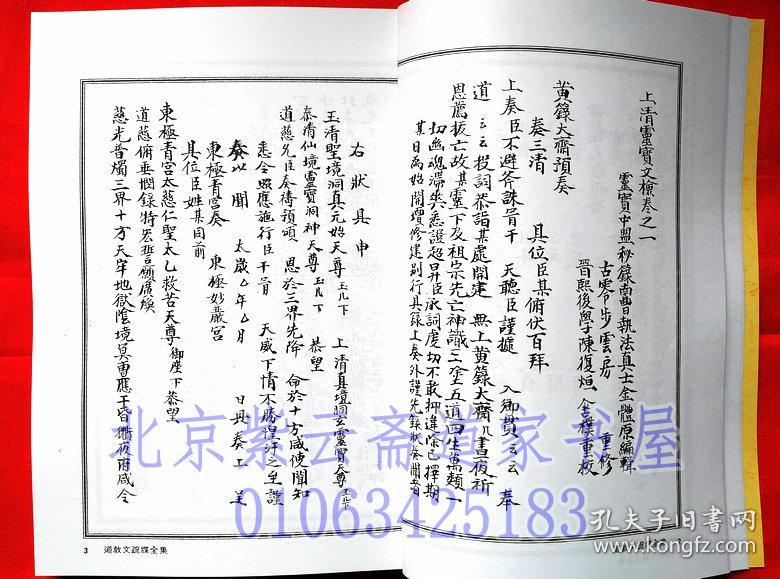 上清靈寶文檢奏之一
靈寶中盟秘籙南曹執法真士金體原編輯
古零步雲房 重修
晉熙後學陳復烜 重校
黃籙大齋預奏
奏三清 具位臣某俯伏百拜
上奏臣不避斧誅冒干 天聽臣謹據 入御貫云云奉
道云云投詞恭詣某處開建 無上黃籙大齋几晝夜祈
恩薦拔亡故某靈下及祖宗先亡神識三塗五道四生萬類一
切幽魂滯爽悉證超昇臣承詞虔切不敢抑違除已擇期
某日為始開壇修建別行具錄上奏外謹先錄狀奏聞者
右狀具申
玉清聖境洞真元始天尊玉几下 上清真境洞玄靈寶天尊玉几下
泰清仙境靈寶洞神天尊玉几下 恭望
道慈允臣奏禱預頒 恩於三界先降 命於十方咸使聞知
悉令照應施行臣干冒 天威下情不勝皇汗之至謹
奏以聞 太歲年月 日具奏上進
東極青宮奏 東極妙嚴宮
具位臣姓某同前
東極青宮太慈仁聖太乙救苦天尊御座下恭望
道慈俯垂憫錄特宏誓願廣煥
慈光普燭三界十方天牢地獄陰境冥曹應干昏衢夜府咸令
3 道教文疏牒全集
北京紫云斋道家书屋
01063425183
孔夫子旧书网
www.kongfz.com